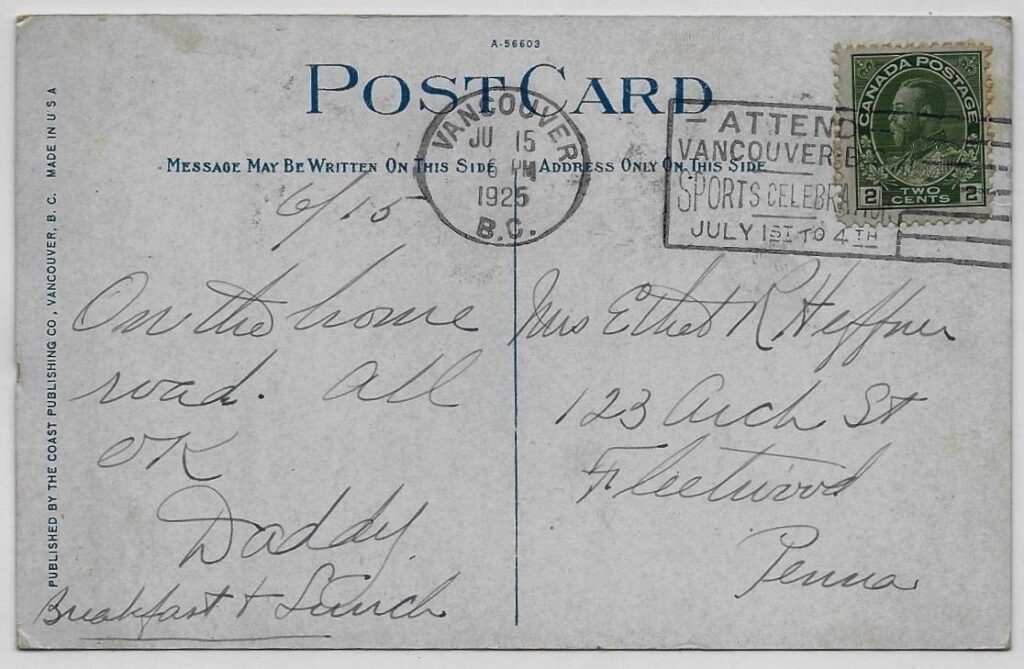 A-56603
POST CARD
MESSAGE MAY BE WRITTEN ON THIS SIDE
ADDRESS ONLY ON THIS SIDE
PUBLISHED BY THE COAST PUBLISHING CO., VANCOUVER, B. C. MADE IN U S A
VANCOUVER
JU 15
6 PM
1925
B.C.
ATTEND
VANCOUVER
SPORTS
JULY 1ST TO 4TH
CANADA POSTAGE
2 TWO CENTS 2
6/15
On the home
road. All
OK
Daddy
Breakfast + Lunch
Mrs Ethel R Heffner
123 Arch St
Fleetwood
Penna